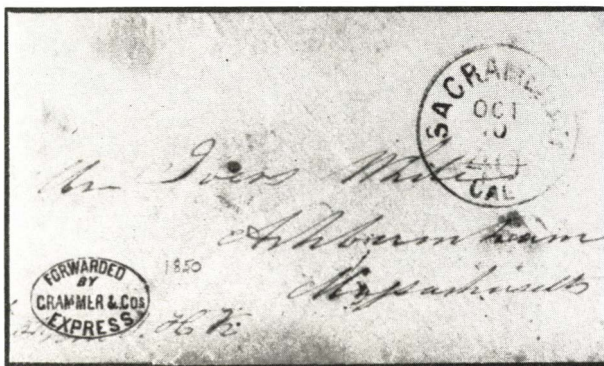 SACRAMENTO
OCT
10
40
CAL
Mr Ivers White
Ashburnham
Massachusetts
1850
FORWARDED
BY
CRAMMER & Cos
EXPRESS